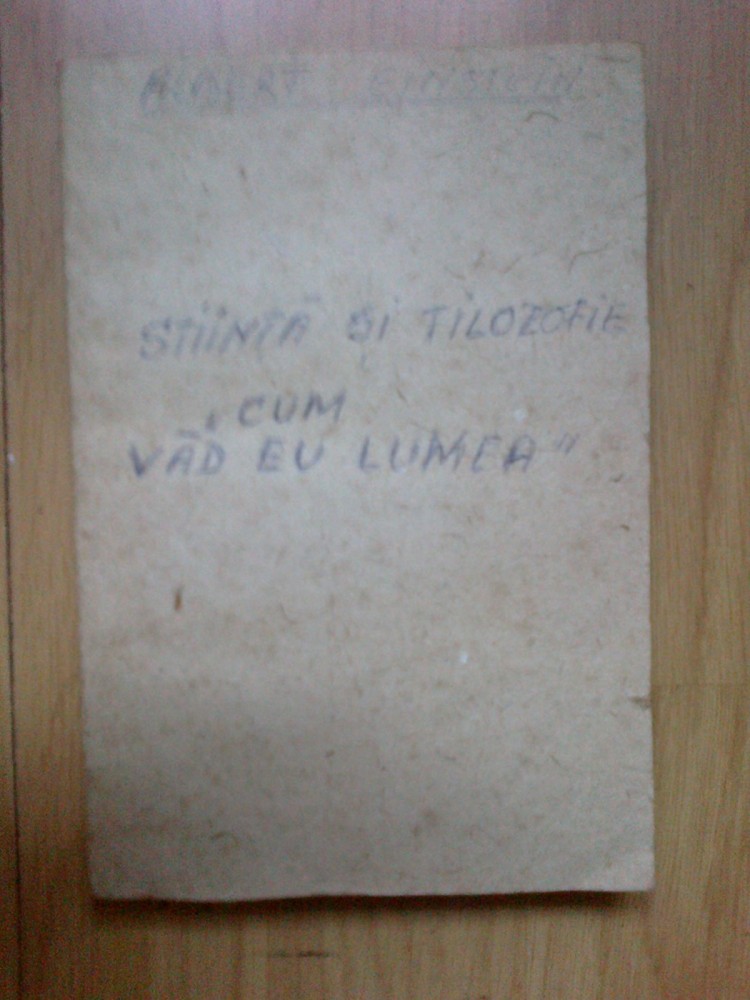 ALBERT EINSTEIN
STIINTĂ ŞI FILOZOFIE
„CUM
VĂD EU LUMEA"